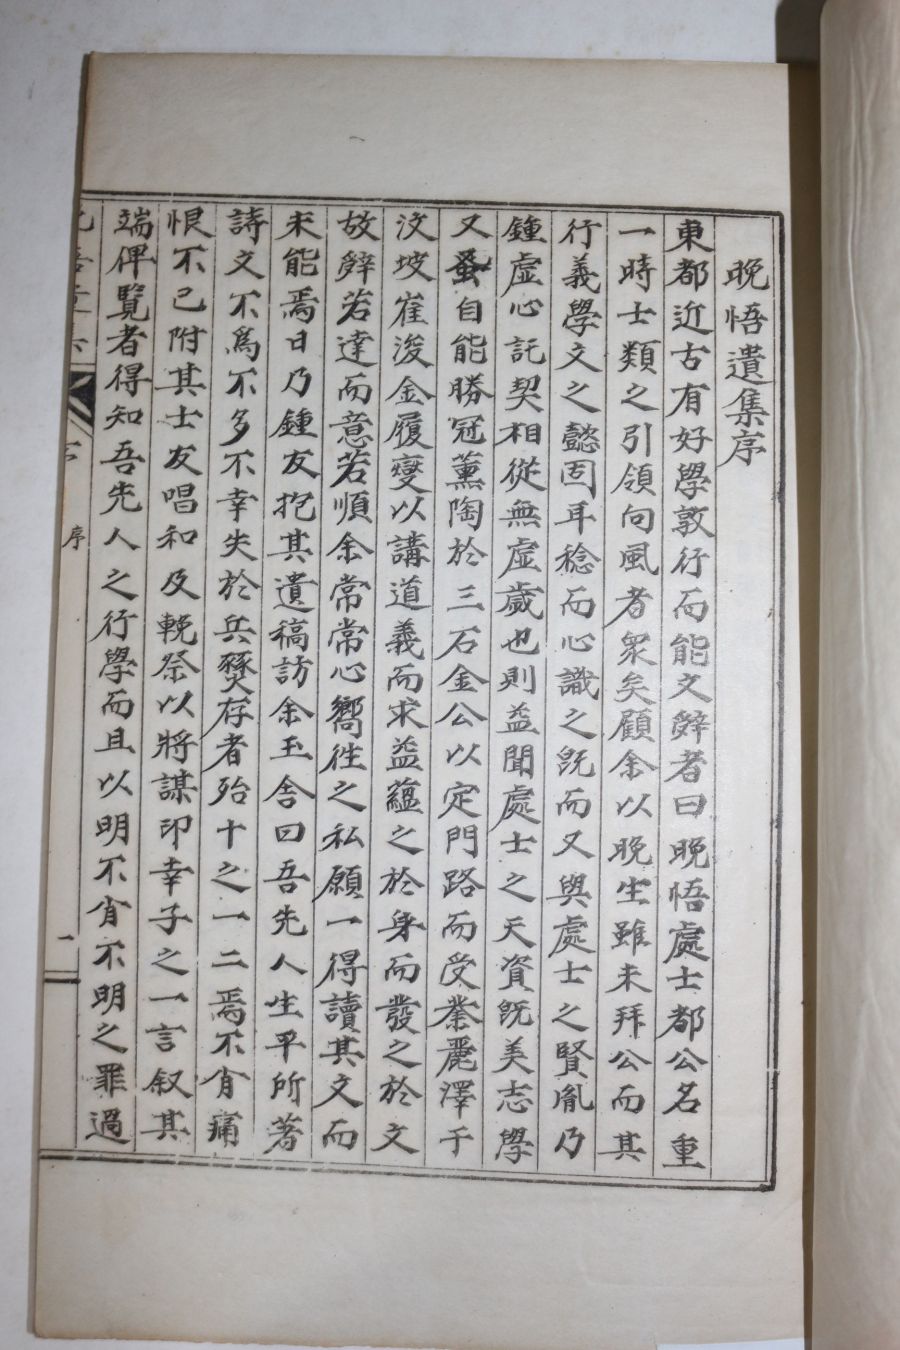 晩悟遺集序
東都近古有好學敦行而能文辭者曰晩悟處士都公名重
一時士類之引領向風者衆矣顧余以晩生雖未拜公而其
行義學文之懿固耳稔而心識之旣而又與處士之賢胤乃
鍾虛心託契相從無虛歲也則益聞處士之天資旣美志學
又蚤自能勝冠薰陶於三石金公以定門路而受業麗澤于
汶坡崔浚金履燮以講道義而求益蘊之於身而發之於文
故辭若達而意若順余常常心嚮徃之私願一得讀其文而
未能焉日乃鍾友抱其遺稿訪余玉舍曰吾先人生平所著
詩文不爲不多不幸失於兵燹存者殆十之一二焉不肖痛
恨不已附其士友唱和及輓祭以將謀印幸子之一言叙其
端俾覽者得知吾先人之行學而且以明不肖不明之罪過
序
一